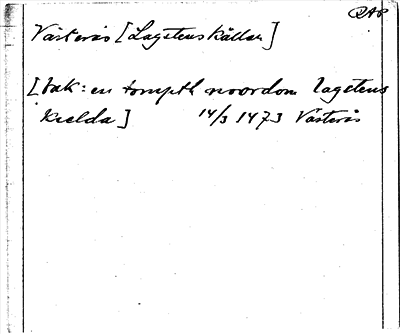 RAP
Västerås [Lagetens källan]
[bak: en tompth noordom lagetens
kælda] 14/3 1473 Västerås